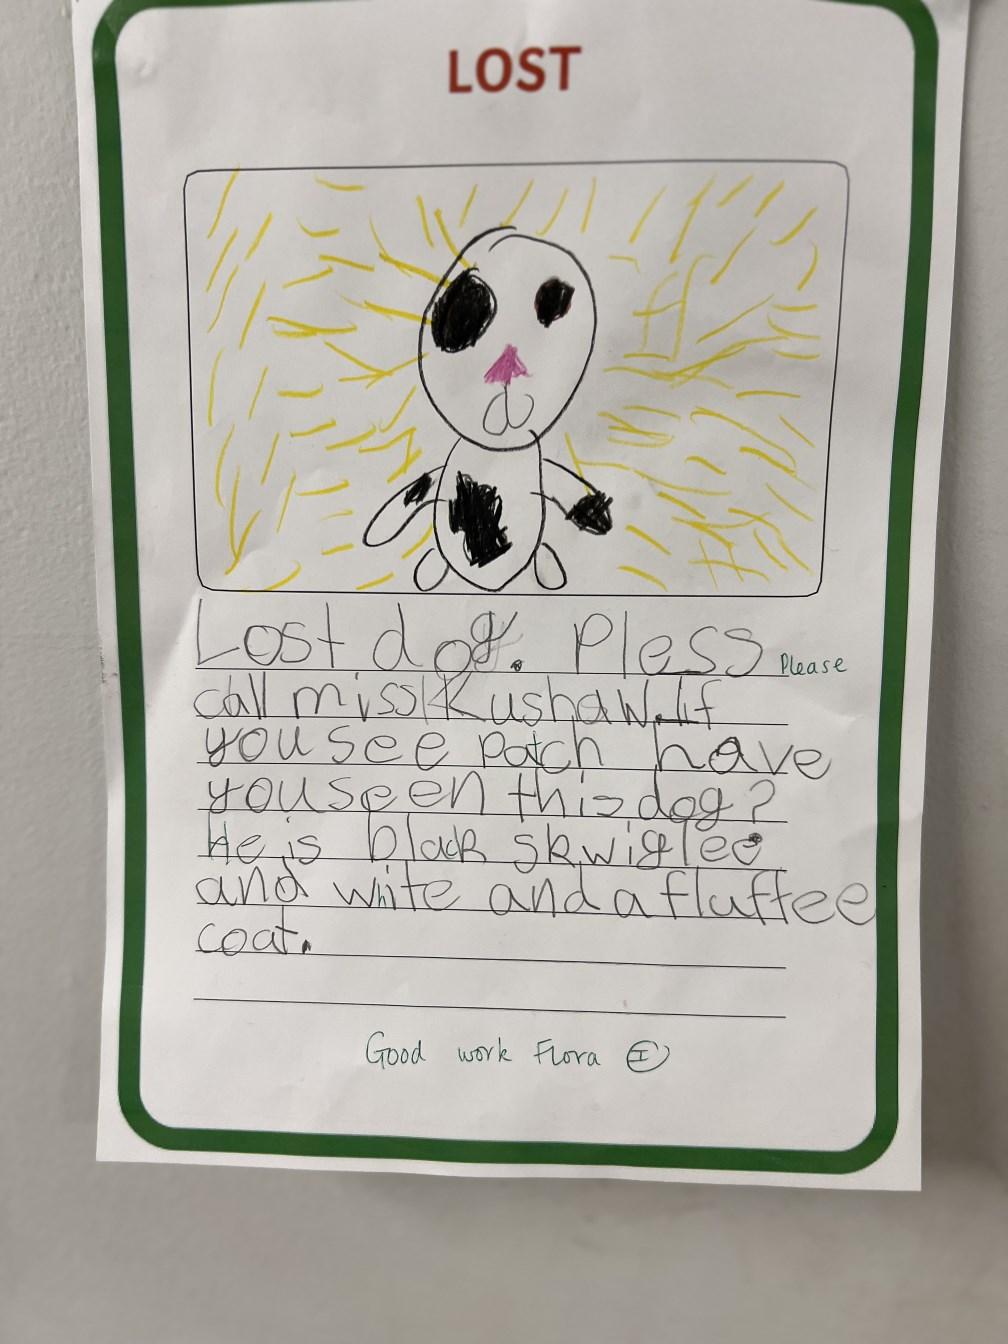 LOST
Lost dog. Pless Please
call miss Kushaw. If
you see patch have
you seen this dog?
He is black skwiglee
and white and a fluffee
coat.
Good work Flora I